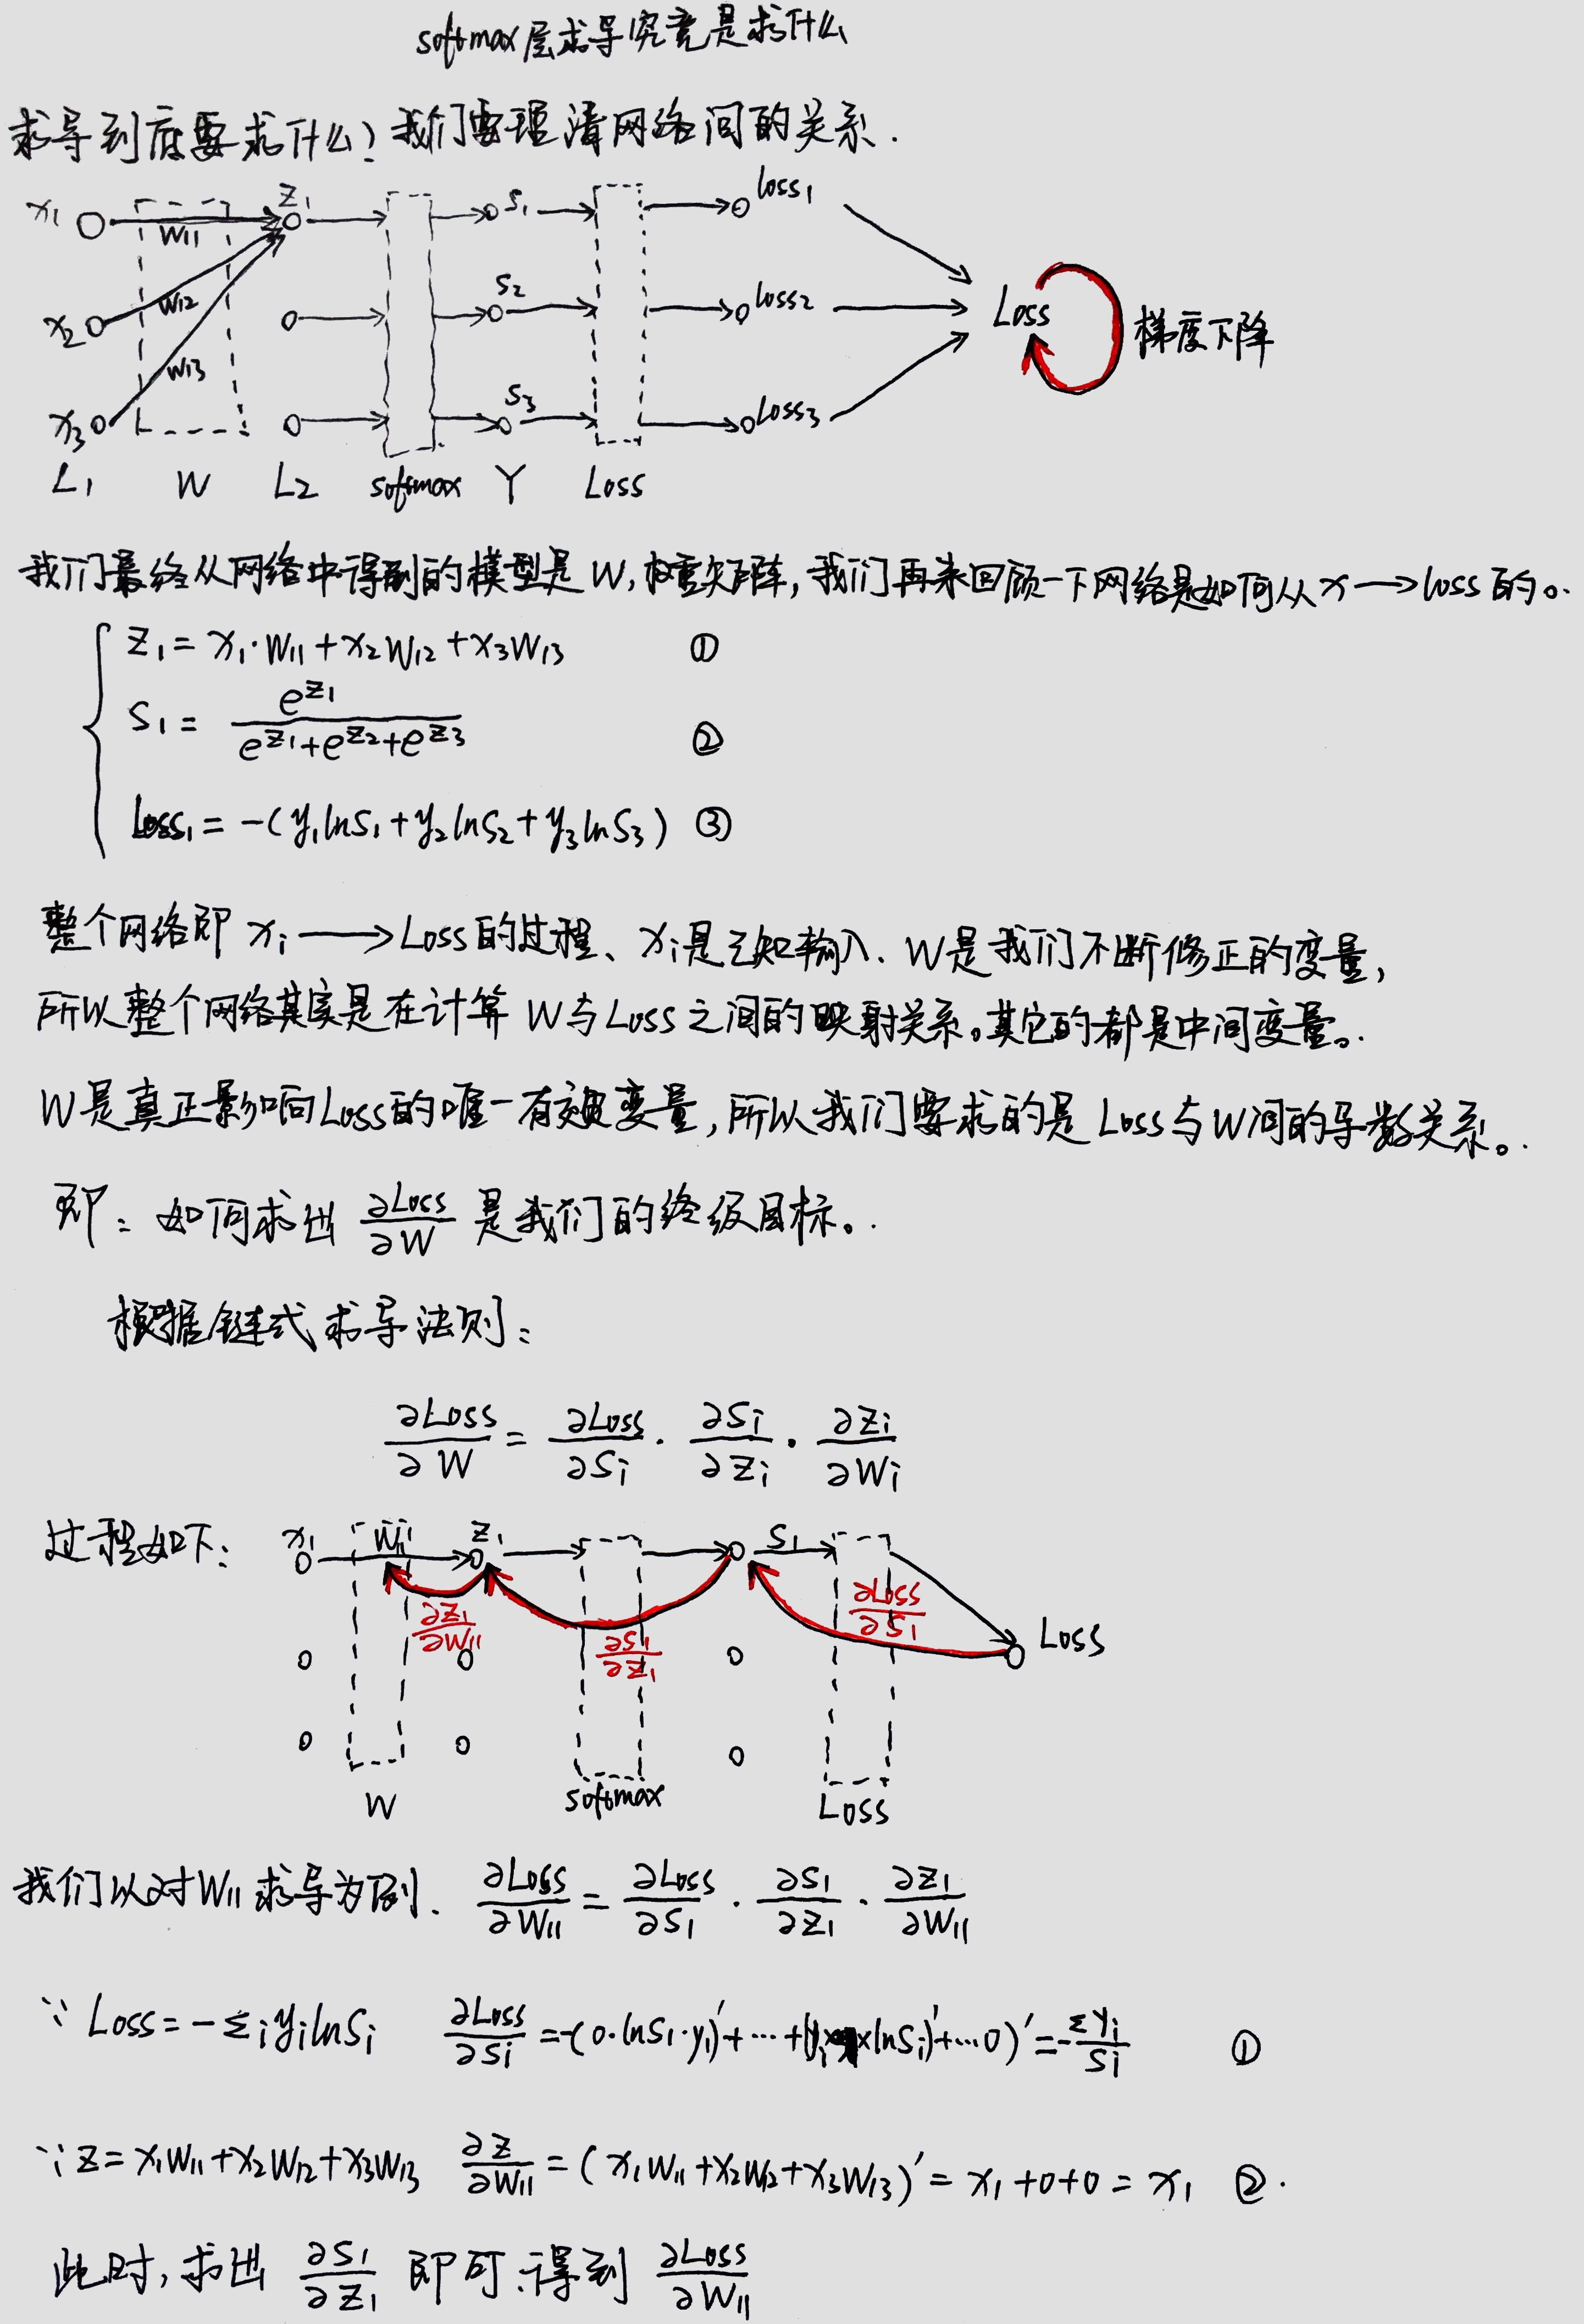 softmax层求导究竟是求什么
求导到底要求什么？我们要理清网络间的关系.
x₁ W₁₁ Z₁ S₁ loss₁
x₂ W₁₂ S₂ loss₂ Loss 梯度下降
x₃ W₁₃ S₃ Loss₃
L₁ W L₂ softmax Y Loss
我们最终从网络中得到的模型是W,权重矩阵,我们再来回顾一下网络是如何从x→loss的。
Z₁ = x₁·W₁₁ + x₂W₁₂ + x₃W₁₃ ①
S₁ = e^Z₁ / (e^Z₁ + e^Z₂ + e^Z₃) ②
Loss₁ = -(y₁lnS₁ + y₂lnS₂ + y₃lnS₃) ③
整个网络即 xᵢ→Loss的过程、xᵢ是已知输入. W是我们不断修正的变量,
所以整个网络其实是在计算 W与Loss之间的映射关系。其它的都是中间变量。
W是真正影响Loss的唯一有效变量,所以我们要求的是 Loss与W间的导数关系。
即: 如何求出 ∂Loss/∂W 是我们的终级目标。
根据链式求导法则:
∂Loss/∂W = ∂Loss/∂Sᵢ · ∂Sᵢ/∂Zᵢ · ∂Zᵢ/∂Wᵢ
过程如下: x₁ W₁₁ Z₁ S₁
∂Z₁/∂W₁₁ ∂S₁/∂Z₁ ∂Loss/∂S₁ Loss
W softmax Loss
我们以对W₁₁求导为例. ∂Loss/∂W₁₁ = ∂Loss/∂S₁ · ∂S₁/∂Z₁ · ∂Z₁/∂W₁₁
∵ Loss = -ΣᵢyᵢlnSᵢ ∂Loss/∂Sᵢ = -(0·lnS₁·y₁)′+ ··· +(yᵢ×(lnSᵢ)′+···0)′ = -Σyᵢ/Sᵢ ①
∵ Z = x₁W₁₁ + x₂W₁₂ + x₃W₁₃ ∂Z/∂W₁₁ = (x₁W₁₁ + x₂W₁₂ + x₃W₁₃)′ = x₁ + 0 + 0 = x₁ ②.
此时, 求出 ∂S₁/∂Z₁ 即可得到 ∂Loss/∂W₁₁